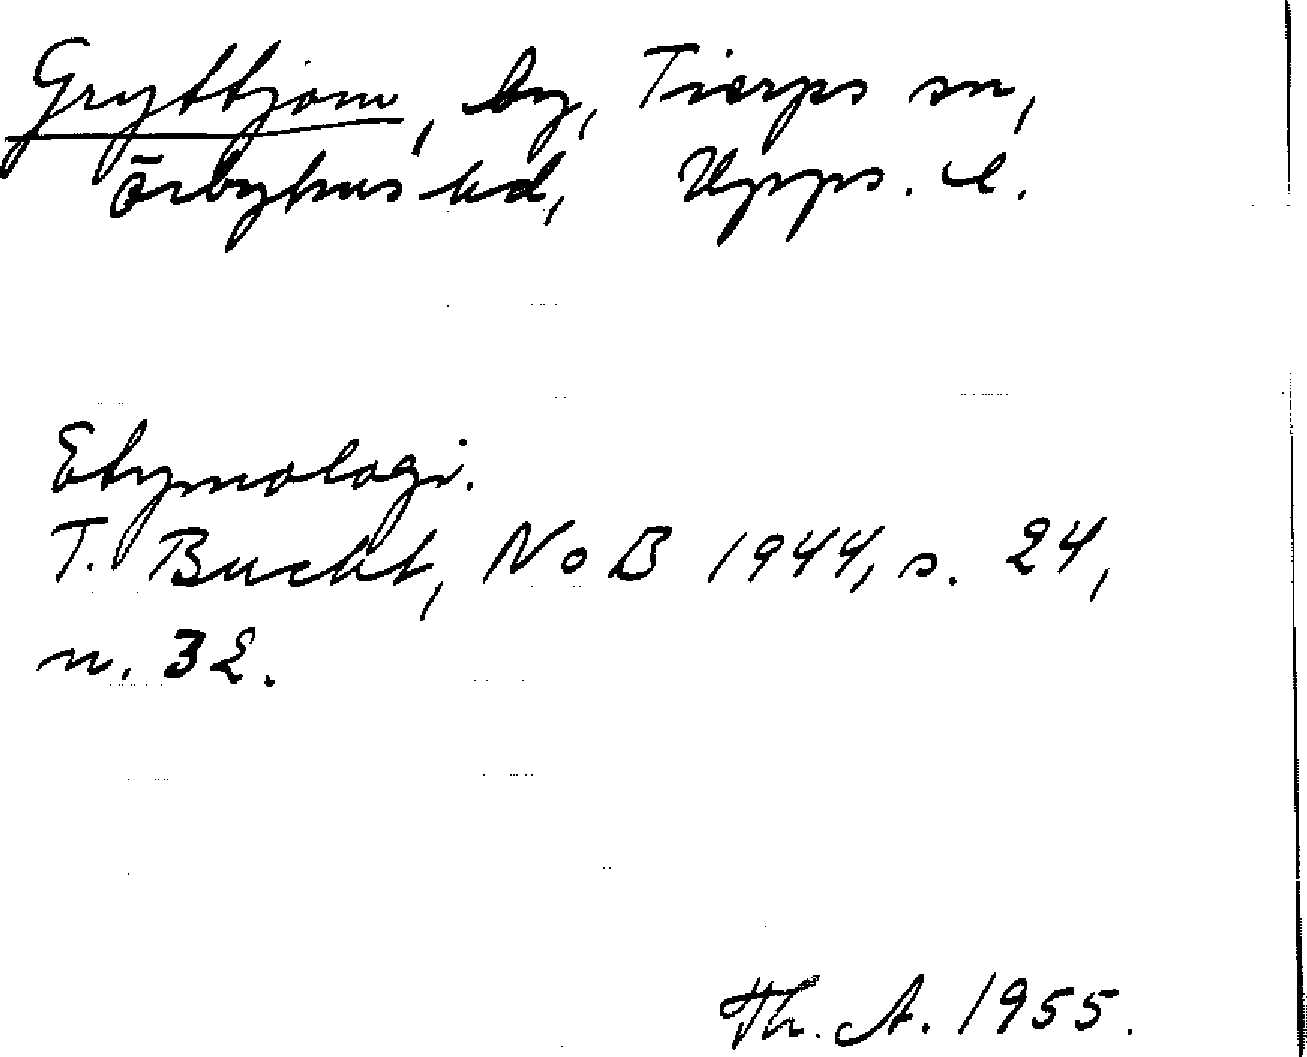 Gryttjom, by, Tierps sn,
Örbyhus hd, Upps. l.
Etymologi.
T. Bucht, NoB 1944, s. 24,
n. 32.
Th. A. 1955.